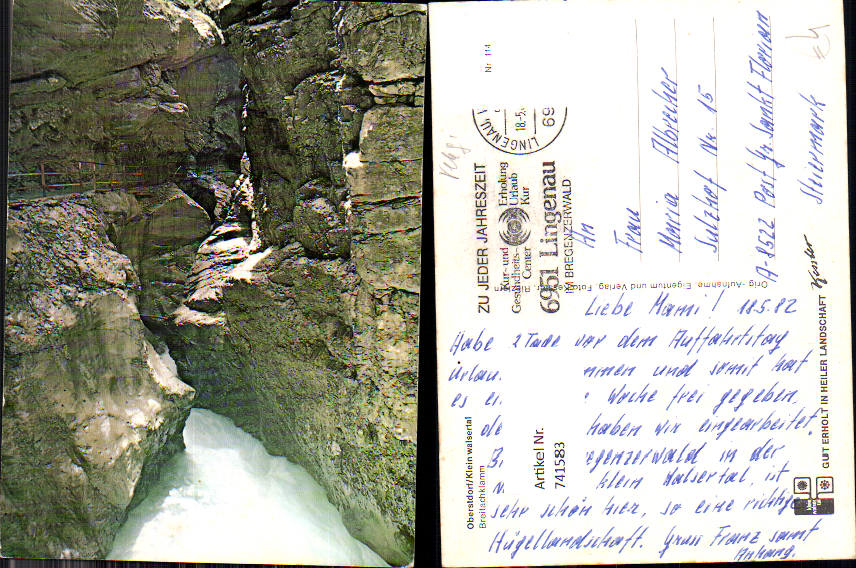 Nr. 114
LINGENAU
18.-5.
69
ZU JEDER JAHRESZEIT
Erholung
Urlaub
Kur
Kur- und
Gesundheits-
Center
6951 Lingenau
IM BREGENZERWALD
An
Frau
Maria Albrecher
Sulzhof Nr. 15
A-8522 Post Gr. Sankt Florian
Steiermark
Orig.-Aufnahme, Eigentum und Verlag:
Liebe Mami! 18.5.82
Habe 2 Tage vor dem Auffahrtstag
Urlau mmen und somit hat
es ei Woche frei gegeben,
die haben wir eingearbeitet.
B egenzerwald in der
klein Walsertal, ist
sehr schön hier, so eine richtige
Hügellandschaft. Gruss Franz samt
Anhang.
Oberstdorf/Kleinwalsertal
Breitachklamm
Artikel Nr.
741583
GUT ERHOLT IN HEILER LANDSCHAFT